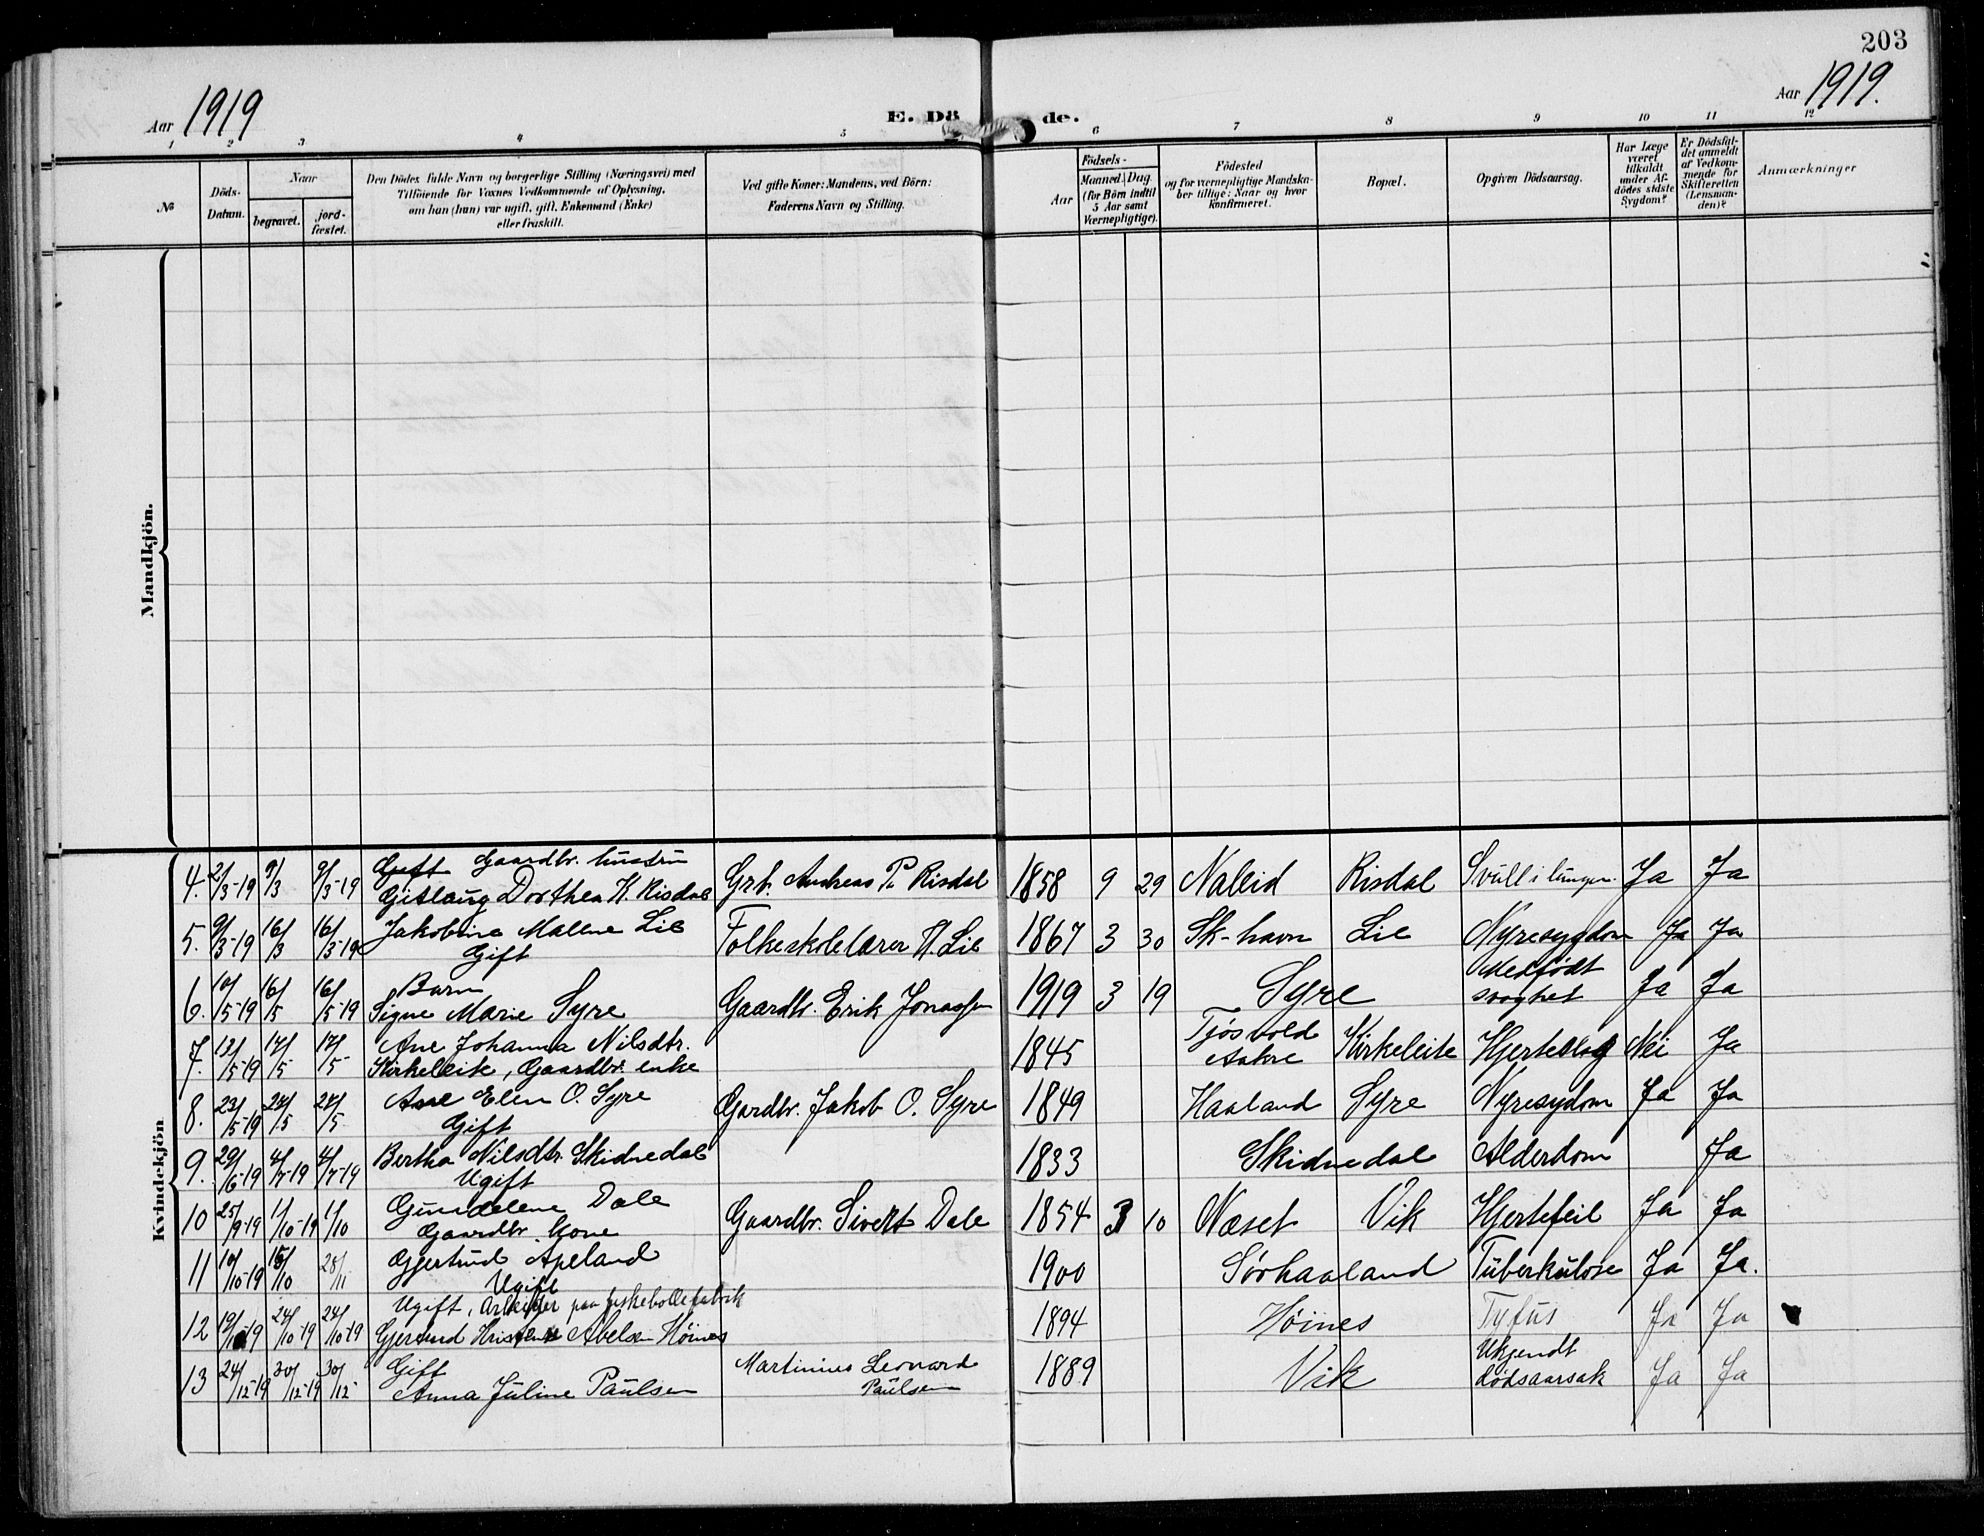 203
Aar 1919
E. Dö
de.
Aar 1919.
1 2 3 4 5 6 7 8 9 10 11 12
№
Döds-
Datum.
Naar
begravet.
jord-
fæstet.
Den Dödes fulde Navn og borgerlige Stilling (Næringsvei) med
Tilföiende for Voxnes Vedkommende af Oplysning,
om han (hun) var ugift, gift, Enkemand (Enke)
eller fraskilt.
Ved gifte Koner: Mandens, ved Börn:
Faderens Navn og Stilling.
Aar
Födsels-
Maaned. Dag
(for Börn indtil
5 Aar samt
Værnepligtige).
Födested
og for værnepligtige Mandska-
ber tillige: Naar og hvor
konfirmeret.
Bopæl.
Opgiven Dödsaarsag.
Har Læge
været
tilkaldt
under Af-
dödes sidste
Sygdom?
Er Dödsfal-
det anmeldt
af Vedkom-
mende for
Skifteretten
(Lensman-
den)?
Anmærkninger
Mandkjön.
Kvindekjön
Gift Gaardbr. hustru
4. 2/3-19 9/3 9/3-19 Gislaug Dorthea K. Risdal Grb. Andreas P. Risdal 1858 9 29 Nallid Risdal Svull i lungen. Ja Ja
5. 9/3-19 16/3 16/3-19 Jakobine Malene Lie Folkeskolelærer K. Lie 1867 3 30 Sk-havn Lie Nyresygdom Ja Ja
Gift
Barn Medfödt
6. 10/5-19 16/5 16/5-19 Signe Marie Syre Gaardbr. Erik Jonassen 1919 3 19 Syre svaghet Ja Ja
7. 13/5-19 17/5 17/5 Ane Johanna Nilsdtr. 1845 Tjösvold Kirkeleite Hjerteslag Nei Ja
Kirkeleite, Gaardbr. enke Aakre
8. 23/5-19 27/5 27/5 Ane Elen O. Syre Gardbr. Jakob O. Syre 1849 Haaland Syre Nyresydom Ja Ja
Gift
9. 29/6-19 4/7-19 4/7-19 Bertha Nilsdtr. Skidnedal 1833 Skidnedal Alderdom Ja
Ugift
10 25/9-19 1/10-19 1/10 Gundelene Dale Gaardbr. Sivert Dale 1854 3 10 Næset Vik Hjertefeil Ja Ja
Gaardbr. kone
11 10/10-19 15/10 28/11 Gjertrud Apeland 1900 Sörhaaland Tuberkulose Ja Ja.
Ugift
Ugift, Arbeider paa fiskebollefabrik
12 24/10-19 24/10-19 Gjertrud Abelsen Höines 1894 Höines Tyfus Ja Ja
Gift Martinius Leonard Ukjendt
13 24/12-19 30/12-19 30/12- Anna Juline Paulsen Paulsen 1889 Vik dödsaarsak Ja Ja